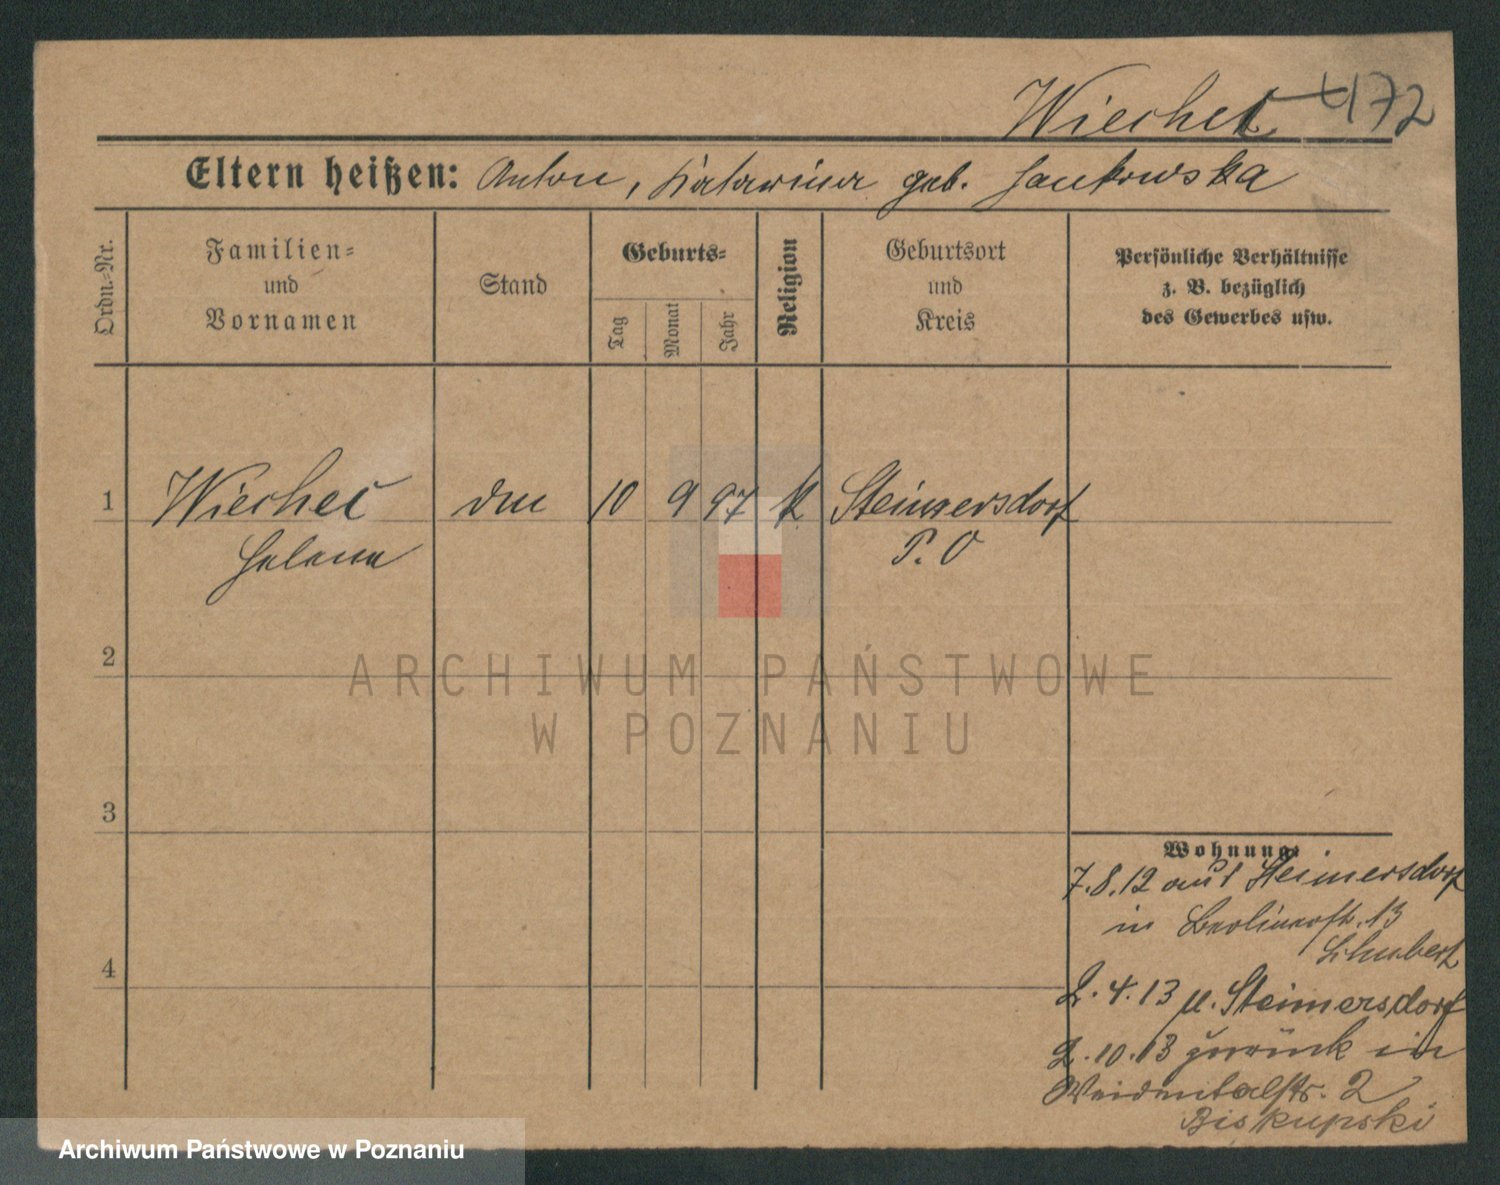 Wiecheć 472
Eltern heißen: Anton, Katarina geb. Jankowska
Ordn.-Nr.
Familien-
und
Vornamen
Stand
Geburts-
Tag
Monat
Jahr
Religion
Geburtsort
und
Kreis
Persönliche Verhältnisse
z. B. bezüglich
des Gewerbes usw.
1 Wiecheć 10 9 97 k Steimersdorf
Helena P. O
2
ARCHIWUM PAŃSTWOWE
W POZNANIU
3
Wohnung:
7.8.12 aus Steimersdorf
in Berlinerstr. 13
Schubert
4
2.4.13 n. Steimersdorf
2.10.13 zurück in
Weidentalstr. 2
Biskupski
Archiwum Państwowe w Poznaniu